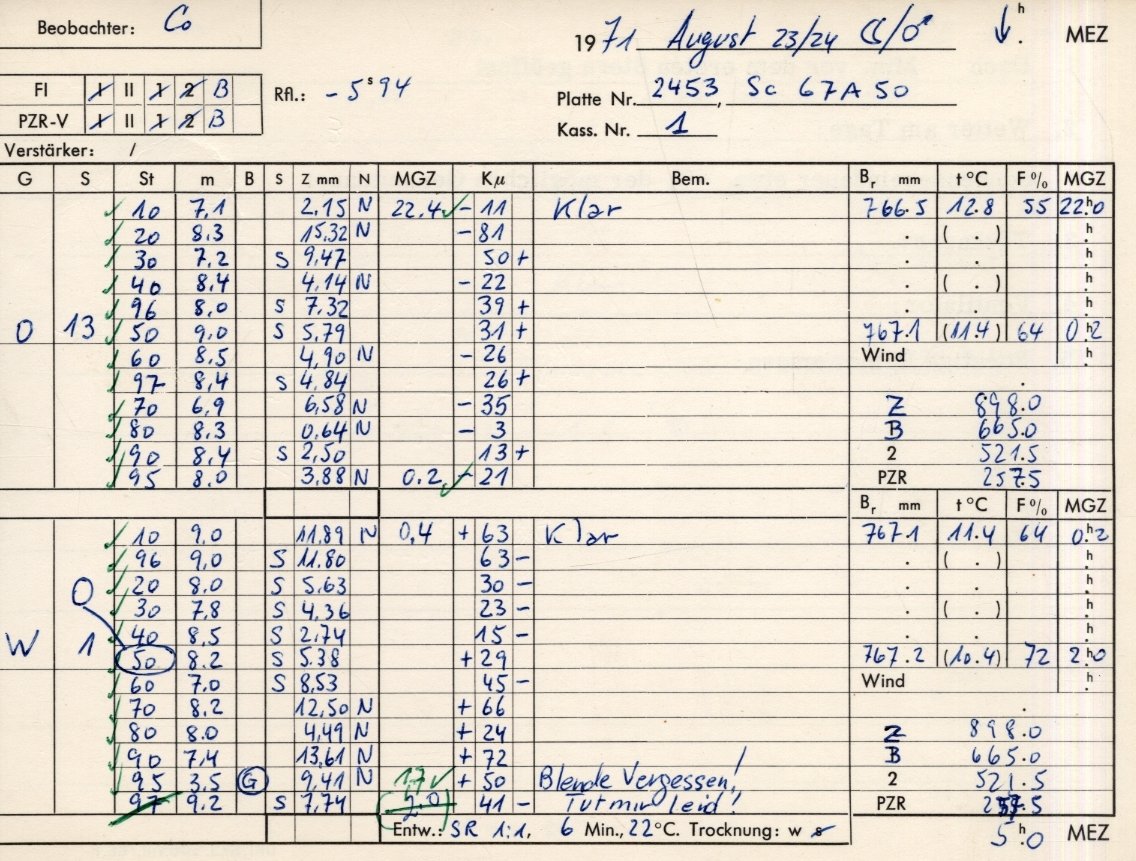 Beobachter: Co
1971 August 23/24 ↓ h. MEZ
FI I II 1 2 B Rfl.: - 5s94
Platte Nr. 2453, Sc 67A50
PZR-V I II 1 2 B
Kass. Nr. 1
Verstärker: /
G S St m B S Z mm N MGZ Kμ Bem. Br mm t °C F % MGZ
10 7,1 2,15 N 22.4 - 11 Klar 766.5 12.8 55 22h0
20 8.3 15,32 N - 81 . ( . ) h
30 7.2 S 9,47 50 + . . h
40 8.4 4,14 N - 22 . ( . ) h
96 8,0 S 7.32 39 + . . h
O 13 50 9,0 S 5.79 31 + 767.1 (11.4) 64 0h2
60 8.5 4,90 N - 26 Wind h
97 8,4 S 4.84 26 + .
70 6,9 6,58 N - 35 Z 898.0
80 8.3 0,64 N - 3 B 665.0
90 8,4 S 2,50 13 + 2 521.5
95 8.0 3,88 N 0.2 - 21 PZR 257.5
Br mm t °C F % MGZ
10 9,0 11.89 N 0,4 + 63 Klar 767.1 11.4 64 0h2
96 9,0 S 11.80 63 - . ( . ) h
O 20 8.0 S 5.63 30 - . . h
30 7,8 S 4,36 23 - . ( . ) h
40 8,5 S 2,74 15 - . . h
W 1 50 8.2 S 5.38 + 29 767.2 (10.4) 72 2h0
60 7.0 S 8,53 45 - Wind h
70 8,2 12,50 N + 66 .
80 8.0 4,49 N + 24 Z 898.0
90 7.4 13,61 N + 72 B 665.0
95 3,5 G 9,41 N 1.7 + 50 Blende Vergessen! 2 521.5
97 9.2 S 7,74 2.0 41 - Tut mir leid! PZR 257.5
Entw.: SR 1:1, 6 Min., 22°C. Trocknung: w s 5h.0 MEZ